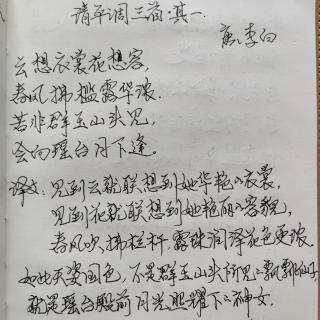 清平调三首·其一
唐 李白
云想衣裳花想容,
春风拂槛露华浓.
若非群玉山头见,
会向瑶台月下逢。
译文:见到云就联想到她华艳的衣裳,
见到花就联想到她艳丽的容貌,
春风吹拂栏杆,露珠润泽花色更浓.
如此天姿国色,不是群玉山头所见的飘飘仙子,
就是瑶台殿前月光照耀下的神女。